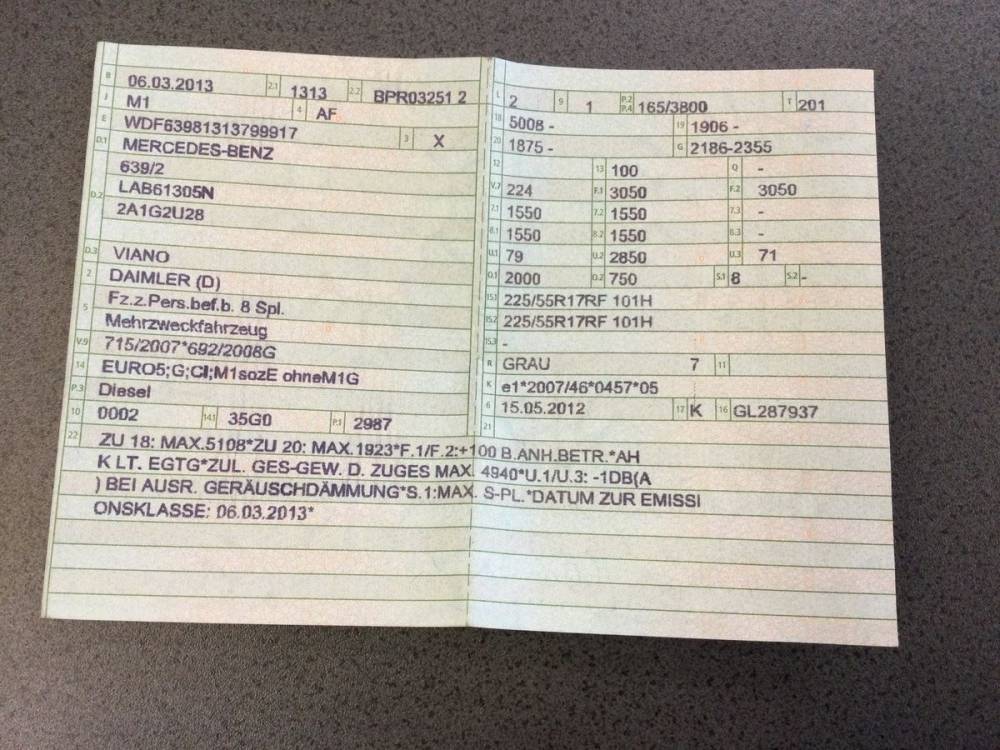 B 06.03.2013 2.1 1313 2.2 BPR03251 2
J M1 4 AF
E WDF63981313799917 3 X
D.1 MERCEDES-BENZ
639/2
D.2 LAB61305N
2A1G2U28
D.3 VIANO
2 DAIMLER (D)
5 Fz.z.Pers.bef.b. 8 Spl.
Mehrzweckfahrzeug
V.9 715/2007*692/2008G
14 EURO5;G;CI;M1sozE ohneM1G
P.3 Diesel
10 0002 14.1 35G0 P.1 2987
L 2 9 1 P.2 P.4 165/3800 T 201
18 5008 - 19 1906 -
20 1875 - G 2186-2355
12 13 100 Q -
V.7 224 F.1 3050 F.2 3050
7.1 1550 7.2 1550 7.3 -
8.1 1550 8.2 1550 8.3 -
U.1 79 U.2 2850 U.3 71
O.1 2000 O.2 750 S.1 8 S.2 -
15.1 225/55R17RF 101H
15.2 225/55R17RF 101H
15.3 -
R GRAU 7 11
K e1*2007/46*0457*05
6 15.05.2012 17 K 16 GL287937
21
22 ZU 18: MAX.5108*ZU 20: MAX.1923*F.1/F.2:+100 B.ANH.BETR.*AH
K LT. EGTG*ZUL. GES-GEW. D. ZUGES MAX. 4940*U.1/U.3: -1DB(A
) BEI AUSR. GERÄUSCHDÄMMUNG*S.1:MAX. S-PL.*DATUM ZUR EMISSI
ONSKLASSE: 06.03.2013*